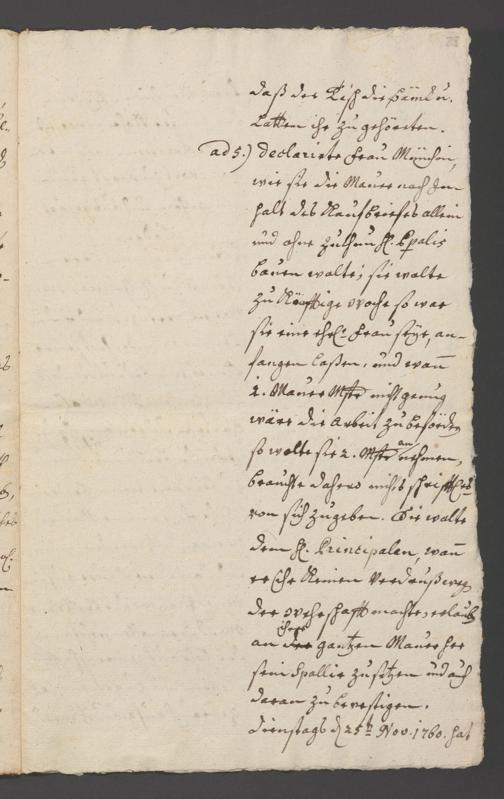 daß der Tisch die Bäncku.
Latten ihr zu gehöreten.
ad 5.) Declarirte Frau Münchin,
wie sie die Mauer nach In-
halt des Kaufbriefes allein
und ohne zuthun H. Ppalis
bauen wolte; sie wolte
zu Künfftige woche so war
sie eine ehrl. Frau seye, an-
fangen laßen, und wann
1. Maurer Mstr nicht genug
wäre die Arbeit zu befördern
so wolte sie 2. Mstr an nehmen,
brauchte dahero nichts schrifftl.es
von sich zugeben. Sie wolte
dem H. Principalen, wann
er ihr Keinen Verdruß weg.
der machte, erlaub
an ihrer gantzen Mauer her
sein Spallir zu setzen und auch
daran zu bevestigen.
Dienstags d 25ten Nov. 1760. hat